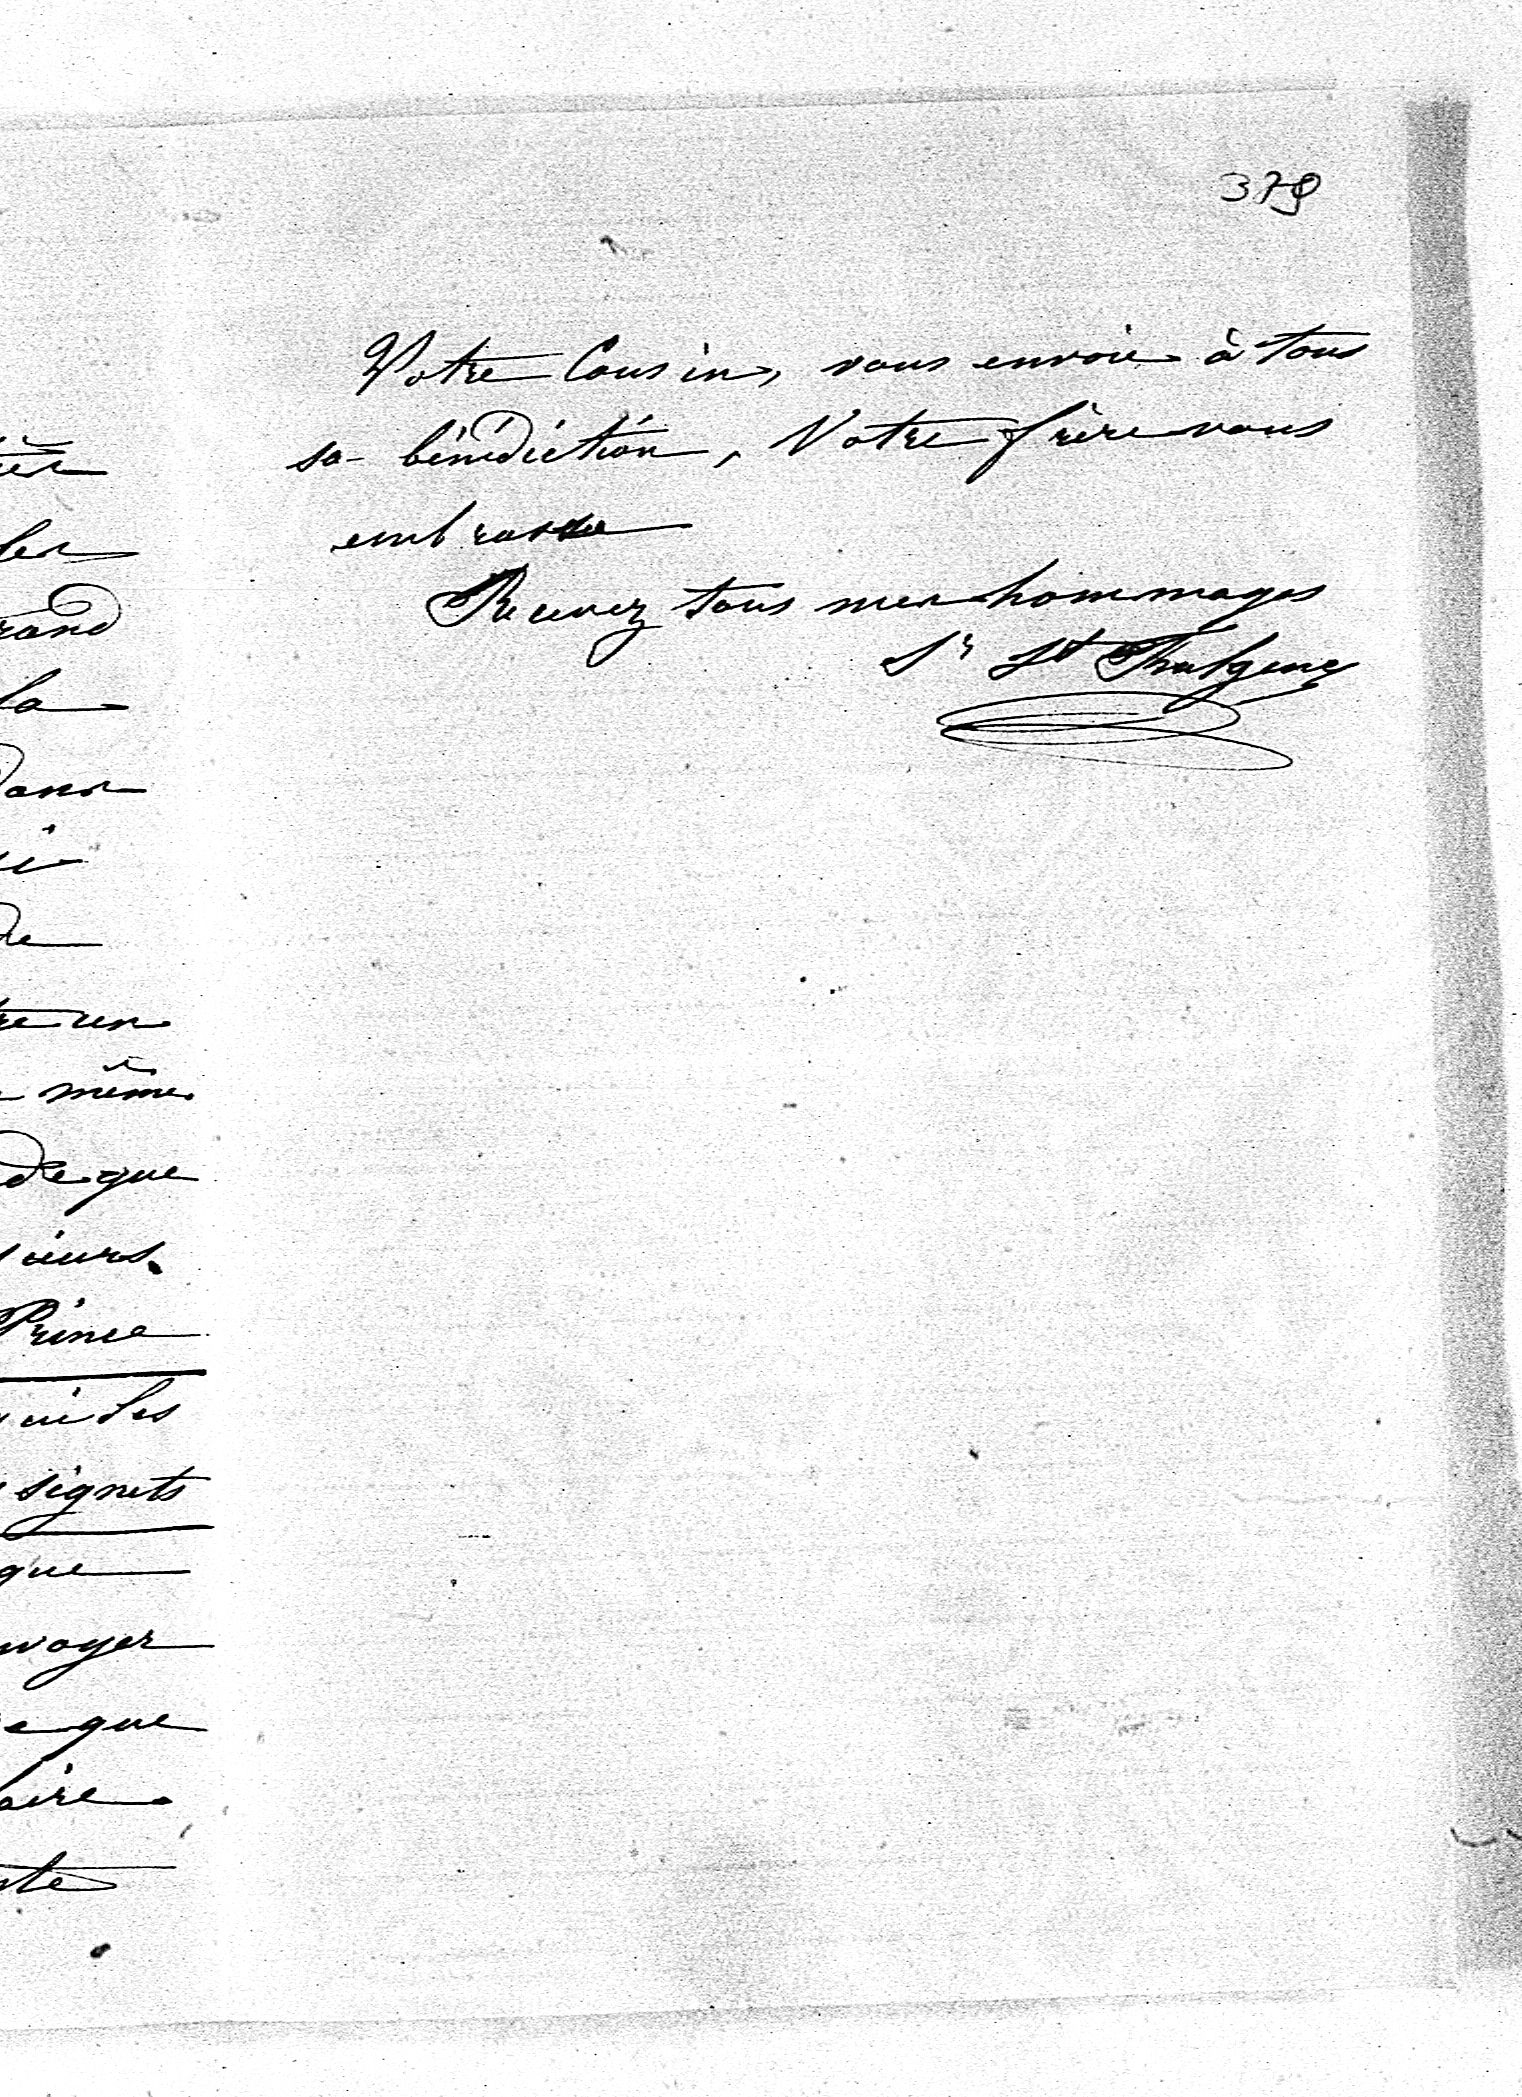 379
Votre Cousin, vous envoie à tous
sa bénédiction, Votre frère vous
embrasse
Recevez tous mes hommages
Sr St
les
rand
la
dans
de
tre un
même
de que
sœurs.
Prince
signets
que
nvoyer
e que
aire